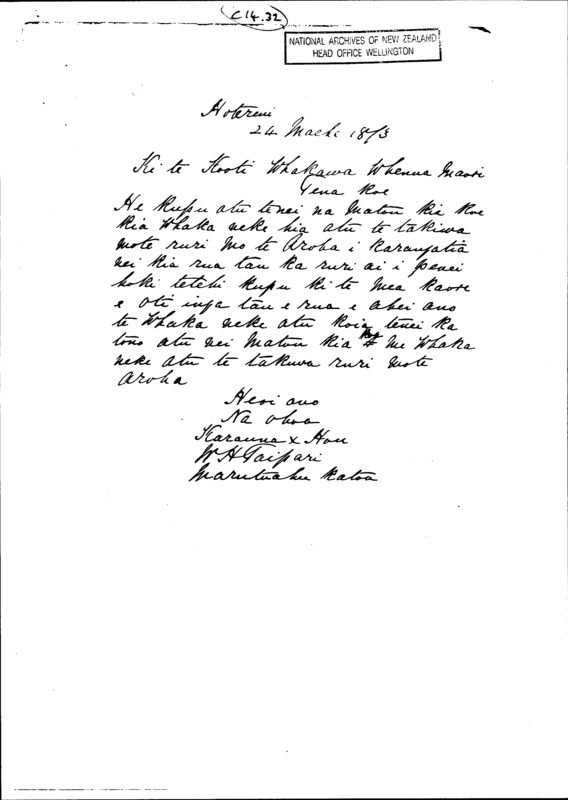 C14.32
NATIONAL ARCHIVES OF NEW ZEALAND
HEAD OFFICE WELLINGTON
Hotereni
24 Maehe 1873
Ki te Kooti Whakawa Whenua Maori
Tena Koe
He Kupu atu tenei na Matou kia Koe
kia Whaka neke hia atu te takiwa
mote ruri mo te Aroha i Karangatia
nei kia rua tau ka ruri ai i penei
hoki tetehi kupu ki te mea kaore
e oti inga tau e rua e ahei ano
te Whaka neke atu koia tenei ka
tono atu nei Matou kia koe me Whaka
neke atu te takiwa ruri mote
Aroha
Heoi ano
Na
Karauna x Hou
W H Taipari
Marutuahu katoa